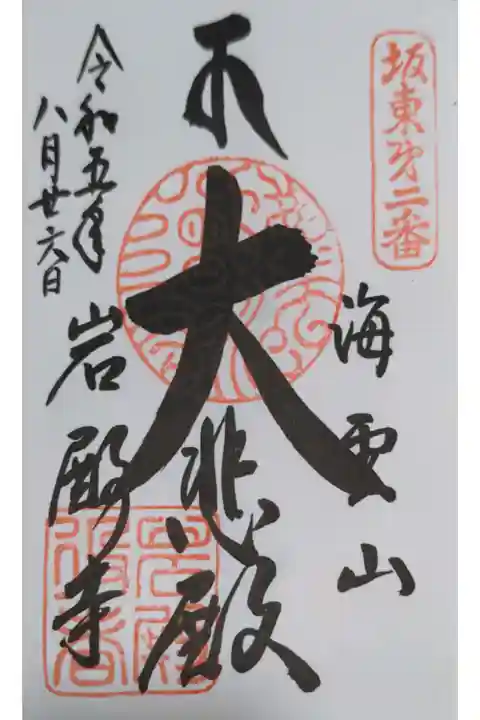 坂東第二番
海雲山
大悲殿
岩殿寺
令和五年
八月廿六日